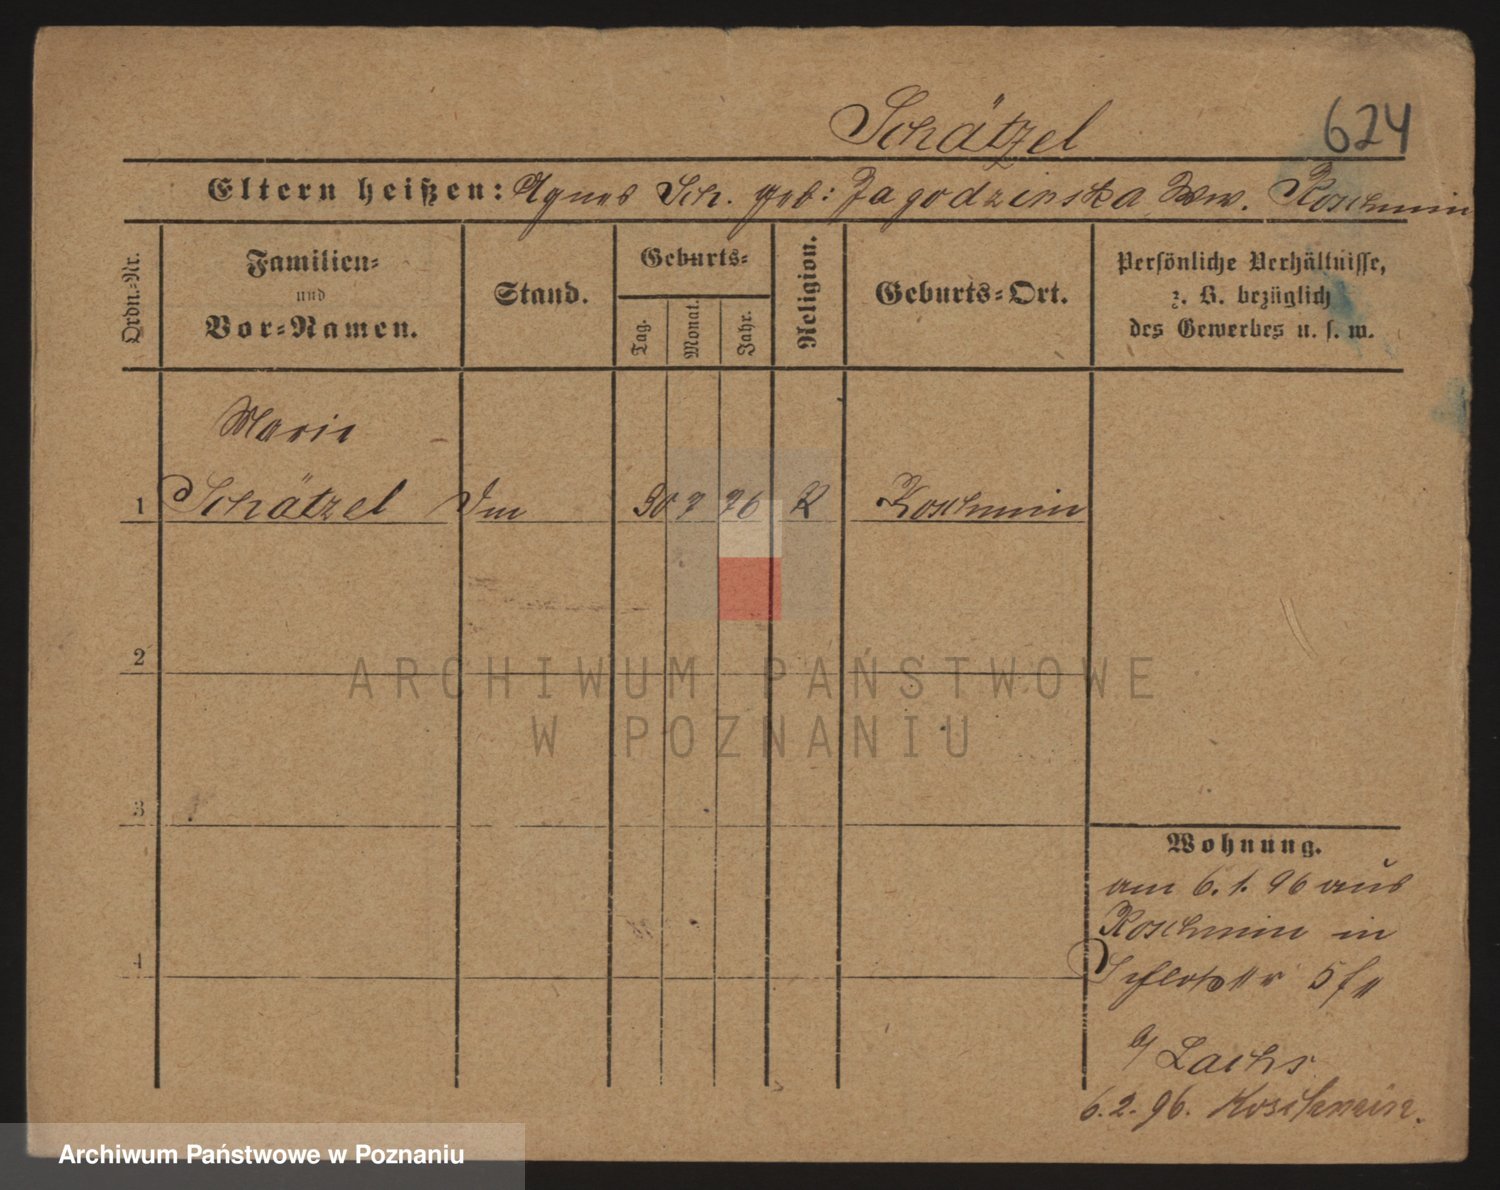 Schätzel 624
Eltern heißen: Agnes Sch. geb: Jagodzinska Ww. Koschmin
Ordn.-Nr.
Familien-
und
Vor-Namen.
Stand.
Geburts-
Tag.
Monat.
Jahr.
Religion.
Geburts-Ort.
Persönliche Verhältnisse,
z. B. bezüglich
des Gewerbes u. s. w.
Marie
1 Schätzel 30 76 K Koschmin
2
3
4
Wohnung.
am 6. 1. 96 aus
Koschmin in
Schloßstr 5
b/ Lachs
6. 2. 96. Koschmin.
ARCHIWUM PAŃSTWOWE
W POZNANIU
Archiwum Państwowe w Poznaniu